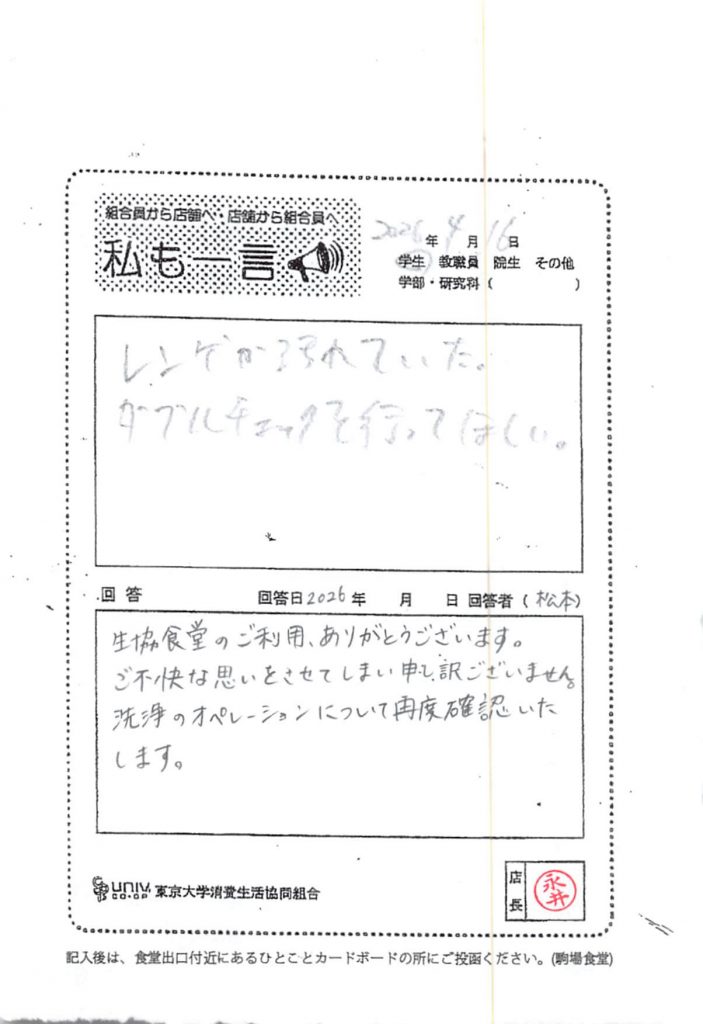 組合員から店舗へ・店舗から組合員へ
私も一言
2026年 4月 16日
学生 教職員 院生 その他
学部・研究科 ( )
レンゲが汚れていた。
ダブルチェックを行ってほしい。
回答 回答日2026年 月 日 回答者 (松本)
生協食堂のご利用、ありがとうございます。
ご不快な思いをさせてしまい申し訳ございません。
洗浄のオペレーションについて再度確認いた
します。
UNIV. CO-OP 東京大学消費生活協同組合
店長 永井
記入後は、食堂出口付近にあるひとことカードボードの所にご投函ください。(駒場食堂)